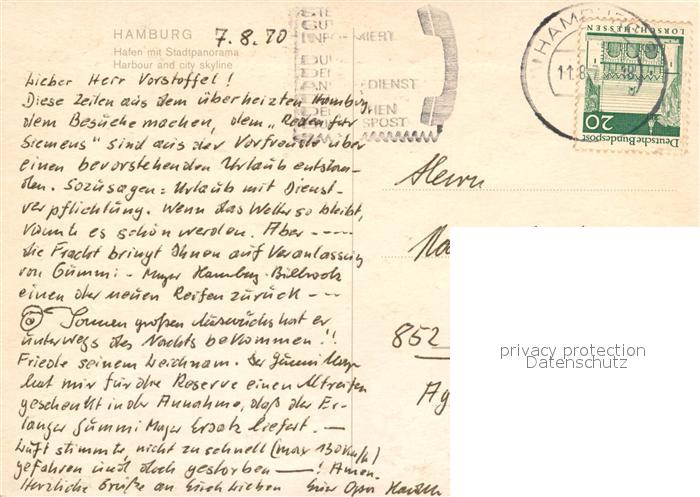 HAMBURG 7.8.70
Hafen mit Stadtpanorama
Harbour and city skyline
INFORMIERT
DIENST
SPOST
HAMBURG
LORSCH/HESSEN
Deutsche Bundespost
20
Lieber Herr Vorstoffel!
Diese Zeilen aus dem überheizten Hamburg,
dem Besuche machen, dem "Reden für
Siemens" sind aus der Vorfreude über
einen bevorstehenden Urlaub entstan-
den. Sozusagen: Urlaub mit Dienst-
verpflichtung. Wenn das Wetter so bleibt,
könnte es schön werden. Aber ----
die Fracht bringt Ihnen auf Veranlassung
von Gummi-Mayer Hamburg-Billbrook
einen der neuen Reifen zurück --
großen Auswuchs hat er
unterwegs des Nachts bekommen!!
Friede seinem Leichnam. Der Gummi Mayer
hat mir für die Reserve einen Altreifen
geschenkt in der Annahme, daß der Er-
langer Gummi Mayer Ersatz liefert. —
Luft stimmte, nicht zu schnell (max 130 km/h)
gefahren und doch gestorben —! Amen.
Herzliche Grüße an Euch Lieben Euer
Herrn
852
privacy protection
Datenschutz